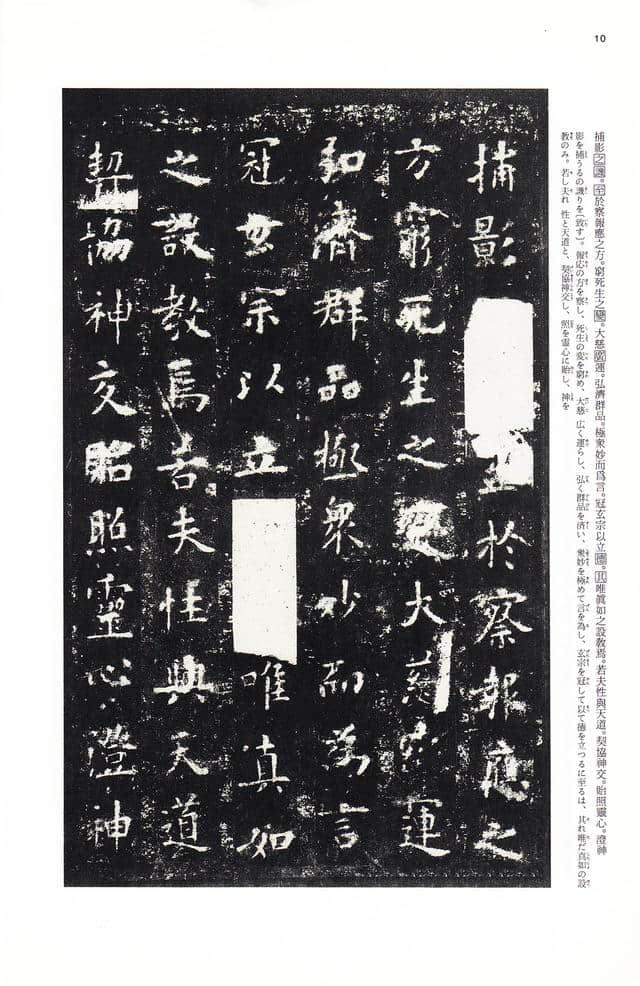 10
捕影之譏。至於察報應之方。窮死生之變。大慈運。弘濟群品。極衆妙而爲言。冠玄宗以立德。其唯眞如之設教焉。若夫性與天道。契協神交。貽照靈心。澄神
影を捕うるの譏りを〔致す〕。報応の方を察し、死生の変を窮め、大慈 広く運らし、弘く群品を済い、衆妙を極めて言を為し、玄宗を冠して以て徳を立つるに至るは、其れ唯だ真如の設
教のみ。若し夫れ 性と天道と、契協神交し、照を霊心に貽し、神を
捕影於察報應之
方窮死生之大慈運
弘濟群品極衆妙而為言
冠玄宗以立唯真如
之設教焉若夫性與天道
契協神交貽照靈心澄神